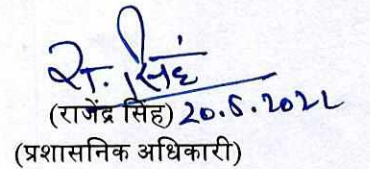 रा. सिंह
(राजेंद्र सिंह) 20.5.2022
(प्रशासनिक अधिकारी)